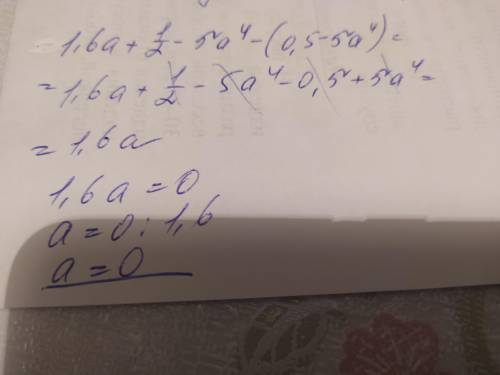 1,6a + 1/2 - 5a⁴ - (0,5 - 5a⁴) =
= 1,6a + 1/2 - 5a⁴ - 0,5 + 5a⁴ =
= 1,6a
1,6a = 0
a = 0 : 1,6
a = 0